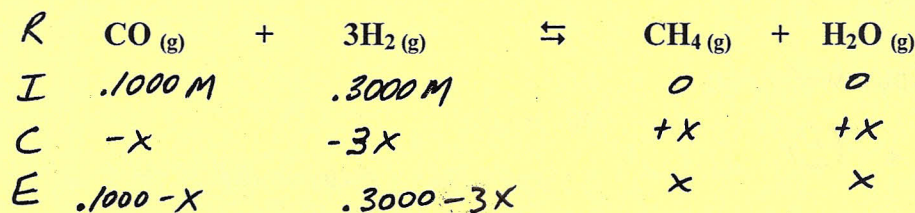 R CO (g) + 3H2 (g) ⇆ CH4 (g) + H2O (g)
I .1000 M .3000 M 0 0
C -x -3x +x +x
E .1000-x .3000-3x x x